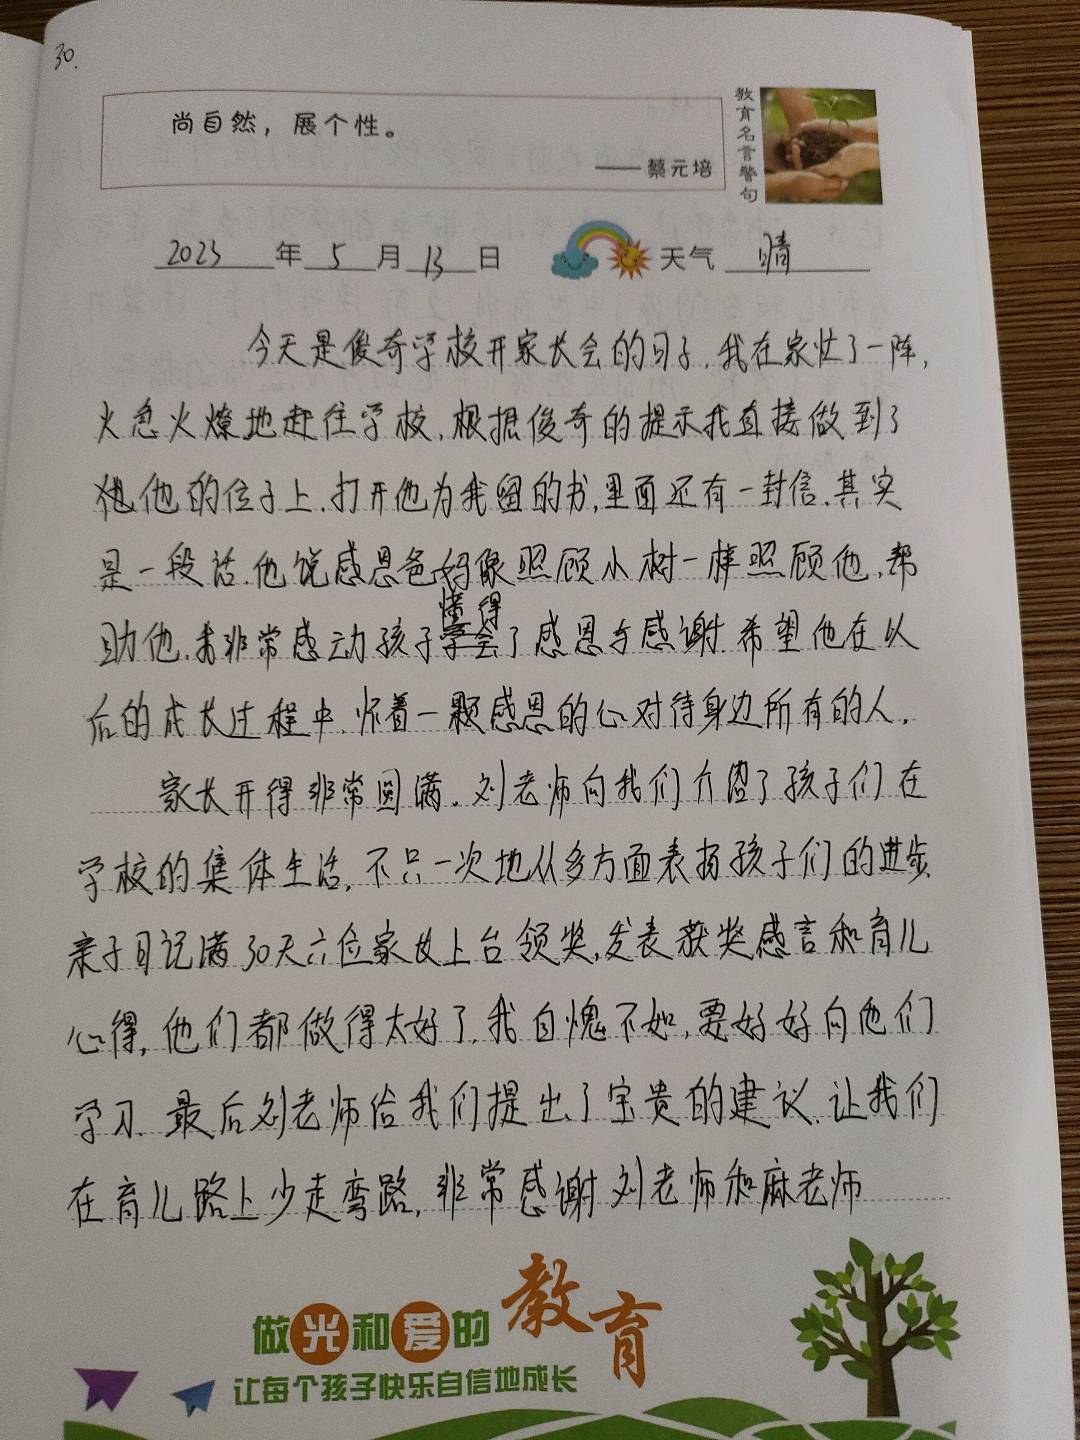 30.
尚自然，展个性。
——蔡元培
教育名言警句
2023年5月13日 天气 晴
今天是俊奇学校开家长会的日子,我在家忙了一阵,
火急火燎地赶往学校,根据俊奇的提示我直接做到了
他的位子上.打开他为我留的书,里面还有一封信.其实
是一段话.他说感恩爸妈像照顾小树一样照顾他,帮
懂得
助他.我非常感动孩子学会了感恩与感谢.希望他在以
后的成长过程中.怀着一颗感恩的心对待身边所有的人.
家长开得非常圆满。刘老师向我们介绍了孩子们在
学校的集体生活,不只一次地从多方面表扬孩子们的进步.
亲子日记满30天六位家长上台领奖,发表获奖感言和育儿
心得,他们都做得太好了,我自愧不如,要好好向他们
学习.最后刘老师给我们提出了宝贵的建议.让我们
在育儿路上少走弯路,非常感谢刘老师和麻老师
做光和爱的教育
让每个孩子快乐自信地成长